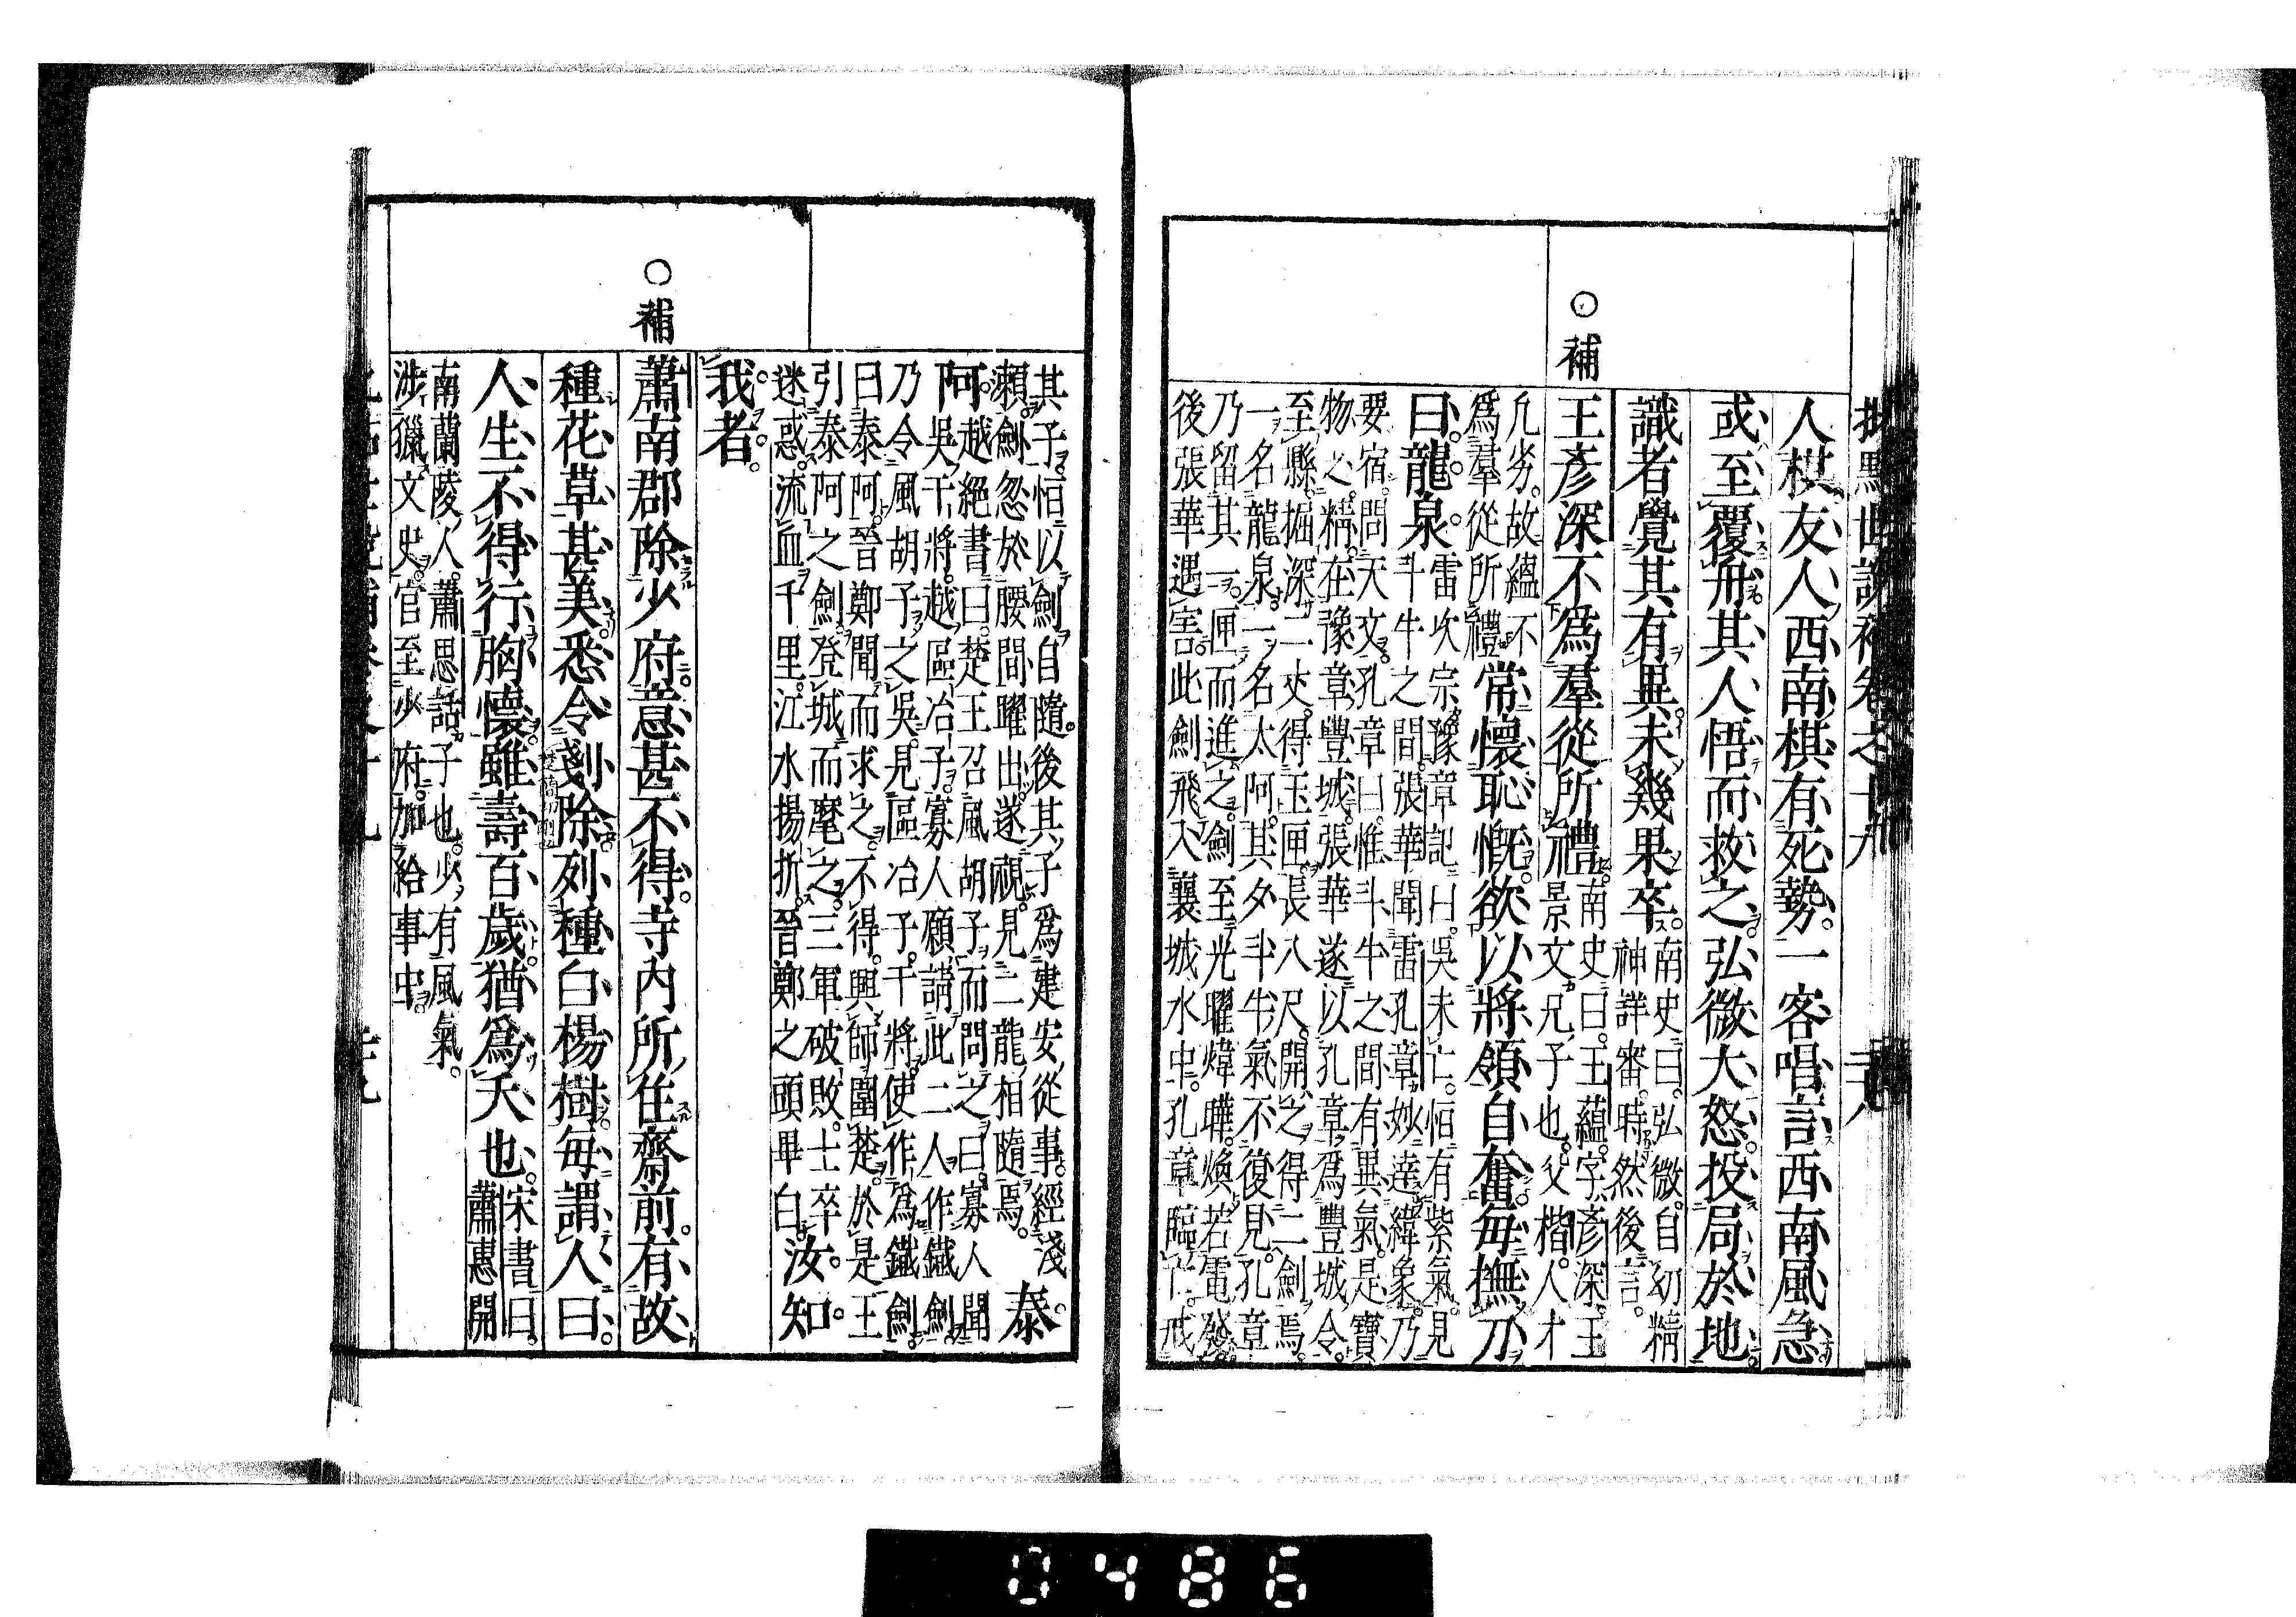 批點世說補卷之十九
二十八
人棋友人西南棋有死勢。一客唱言西南風急
或至覆舟其人悟而救之弘微大怒投局於地
識者覺其有異未幾果卒。
南史曰。弘微。自幼精
神詳審。時然後言。
補
王彥深不爲羣從所禮。
南史曰。王蘊字彥深。王
景文兄子也。父楷。人才
凡劣。故蘊不
爲羣從所禮
常懷恥慨欲以將領自奮每撫刀
曰。龍泉。
雷次宗豫章記曰。吳未亡。恒有紫氣見
斗牛之間。張華聞雷孔章妙達緯象。乃
要宿。問天文。孔章曰。惟斗牛之間有異氣。是寶
物之精。在豫章豐城。張華遂以孔章爲豐城令。
至縣。掘深二丈。得玉匣長八尺。開之得二劍焉。
一名龍泉。一名太阿。其夕斗牛氣不復見。孔章
乃留其一。匣而進之。劍至光曜煒曄。煥若電發。
後張華遇害。此劍飛入襄城水中。孔章臨亡。戒
其子。恒以劍自隨。後其子爲建安從事。經淺
瀨。劍忽於腰間躍出。遂視。見二龍相隨焉。
泰
阿。
越絕書曰。楚王召風胡子而問之曰。寡人聞
吳干將。越區冶子。寡人願請此二人作鐵劍。
乃令風胡子之吳。見區冶子。干將。使作爲鐵劍。
曰泰阿。晉鄭聞而求之。不得。興師圍楚。於是王
引泰阿之劍。登城而麾之。三軍破敗。士卒
迷惑。流血千里。江水揚折。晉鄭之頭畢白。
汝知
我者。
補
蕭南郡除少府。意甚不得。寺內所住齋前。有故
種花草甚美悉令剗除列種白楊樹每謂人曰。
人生不得行胸懷雖壽百歲猶爲夭也。
宋書曰。
蕭惠開
南蘭陵人。蕭思話子也。少有風氣。
涉獵文史。官至少府。加給事中。
0486